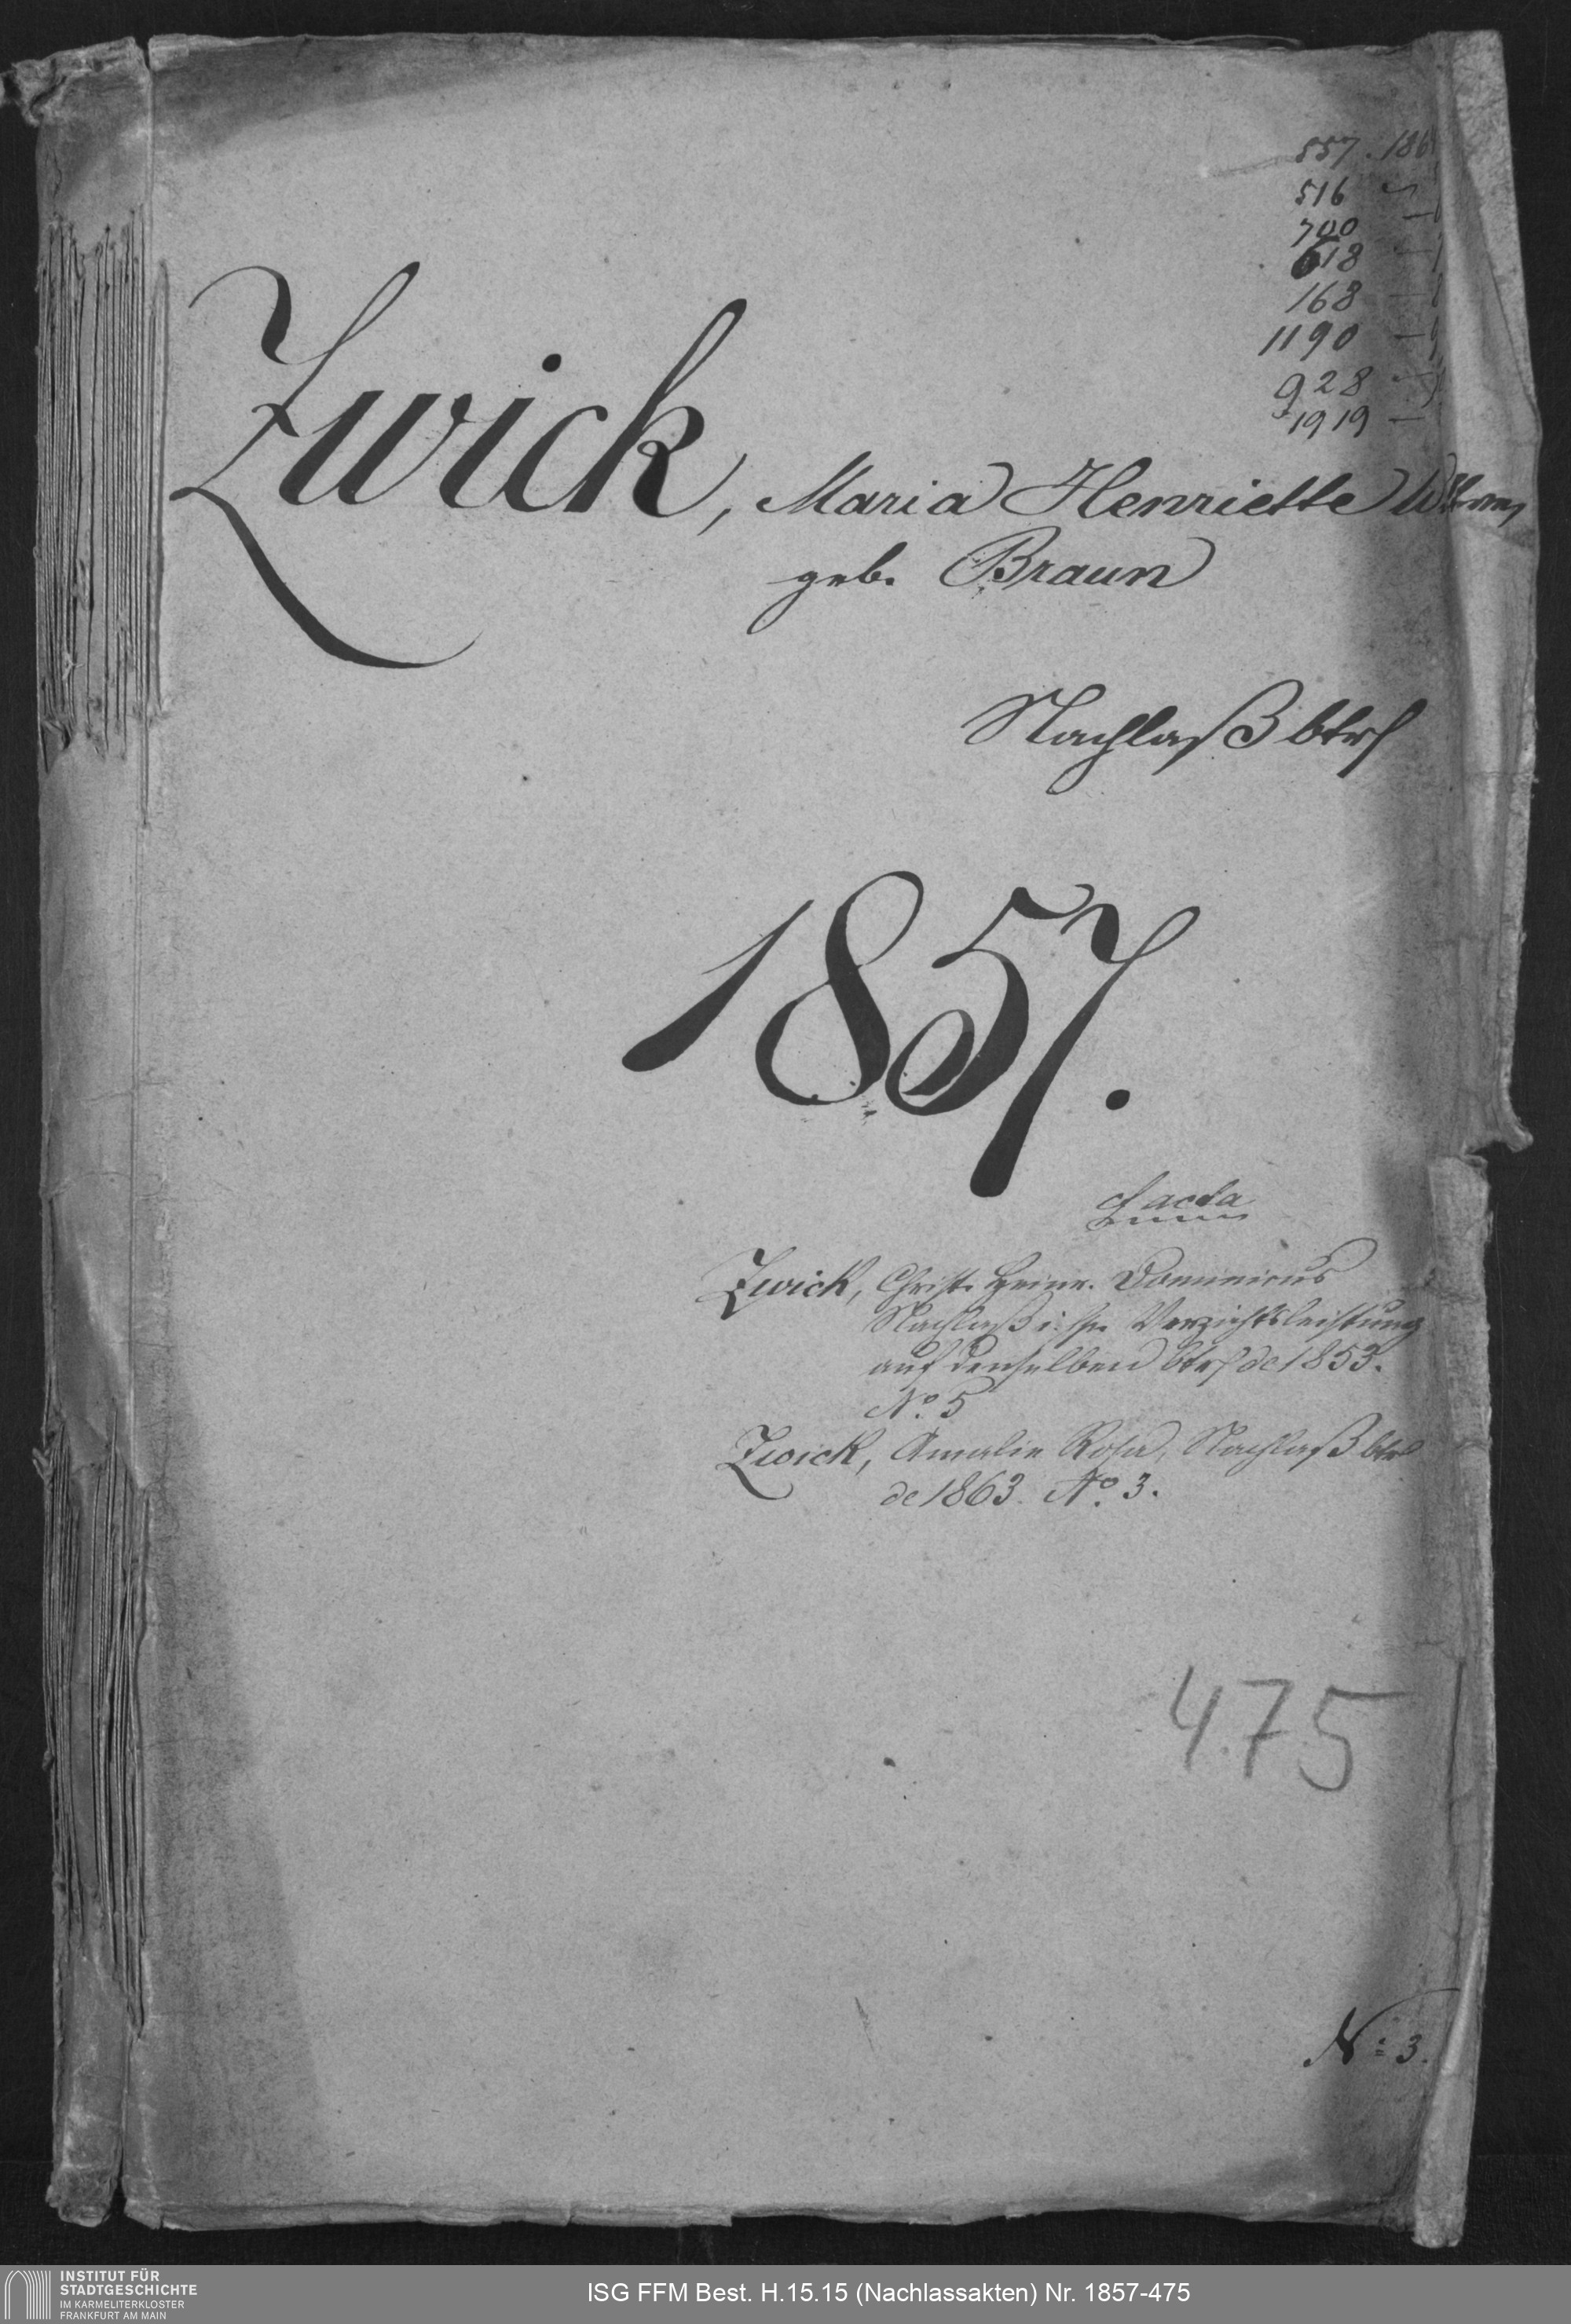 557. 186
516
700
618
168
1190
928
1919
Zwick, Maria Henriette
geb. Braun
Nachlaß btrf
1857.
cf acta
Zwick, Christ. Heinr. Dominicus
Nachlaß Verzichtsleistung
auf denselben btrf de 1853.
No. 5
Zwick, Amalie Rosa, Nachlaß btr
de 1863. No. 3.
475
No. 3.
INSTITUT FÜR
STADTGESCHICHTE
IM KARMELITERKLOSTER
FRANKFURT AM MAIN
ISG FFM Best. H.15.15 (Nachlassakten) Nr. 1857-475